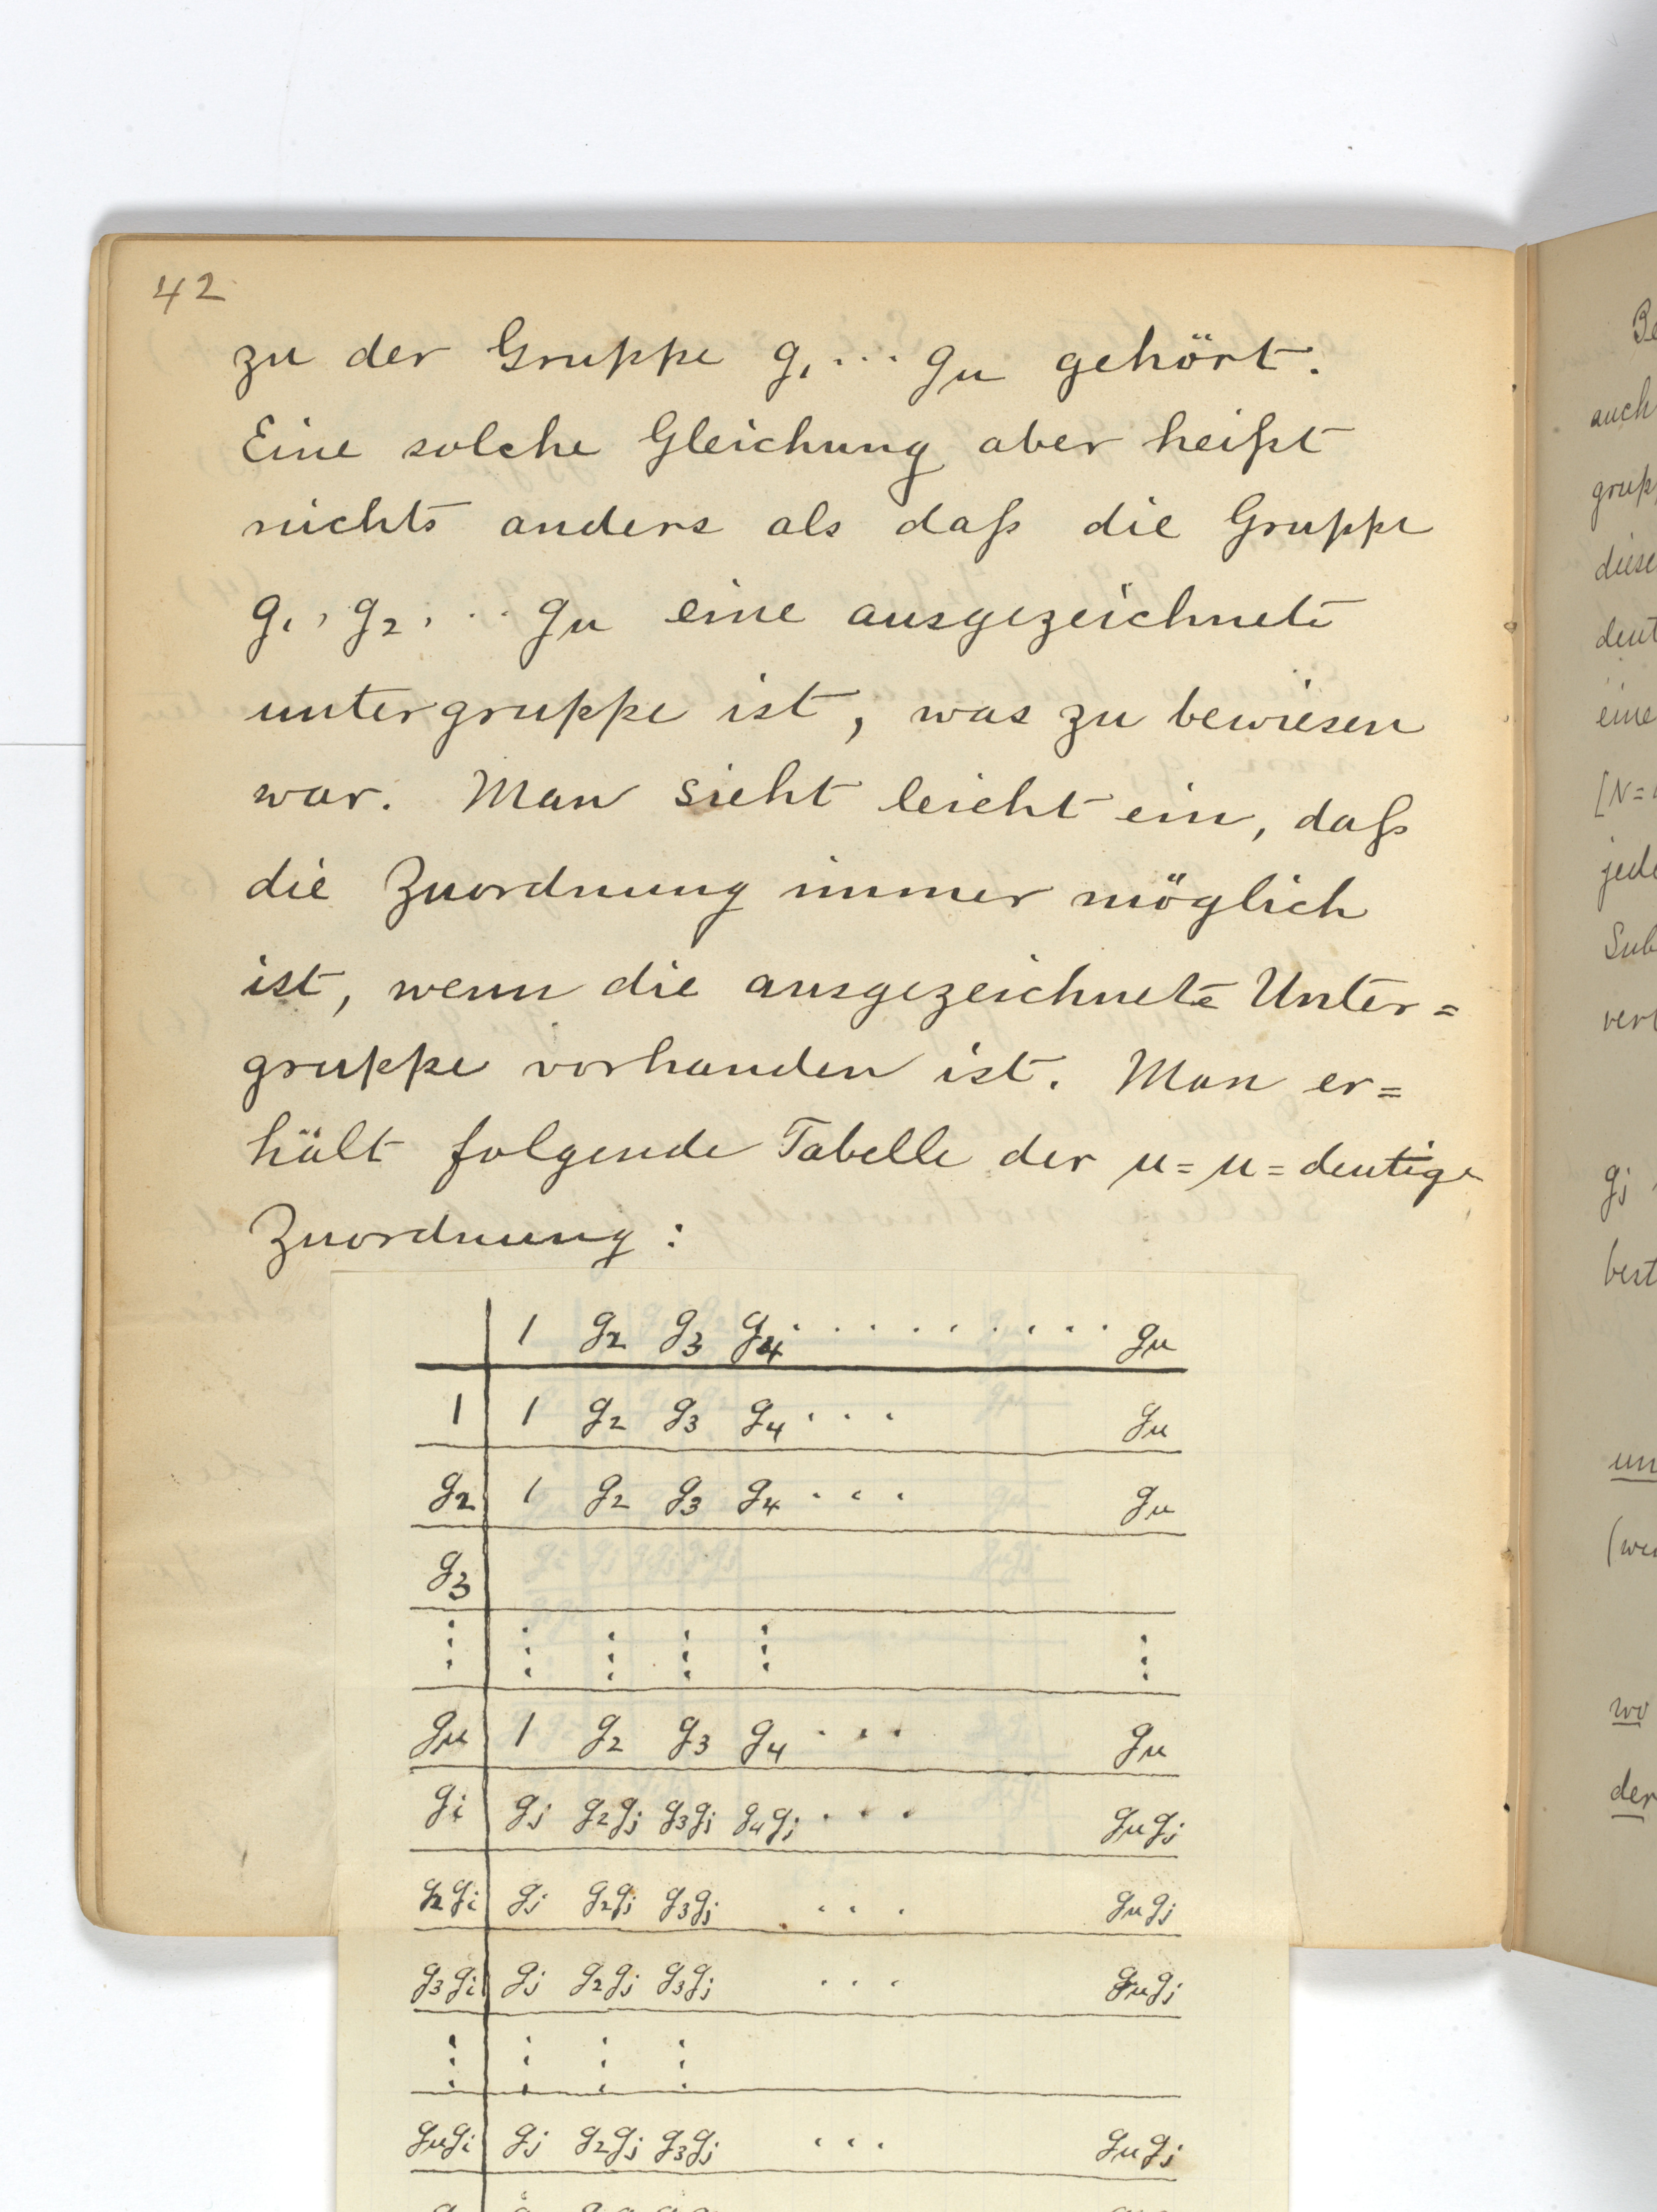 42
zu der Gruppe g₁ ... gu gehört.
Eine solche Gleichung aber heißt
nichts anders als daß die Gruppe
g₁, g₂, ... gu eine ausgezeichnete
untergruppe ist, was zu bewiesen
war. Man sieht leicht ein, daß
die Zuordnung immer möglich
ist, wenn die ausgezeichnete Unter=
gruppe vorhanden ist. Man er=
hält folgende Tabelle der u=u=deutige
Zuordnung:
1 g₂ g₃ g₄ . . . . . . . . . gu
1 1 g₂ g₃ g₄ . . . gu
g₂ 1 g₂ g₃ g₄ . . . gu
g₃
gu 1 g₂ g₃ g₄ . . . gu
gi gj g₂gj g₃gj g₄gj . . . gugj
g₂gi gj g₂gj g₃gj . . . gugj
g₃gi gj g₂gj g₃gj . . . gugj
gugi gj g₂gj g₃gj . . . gugj
auch
diese
eine
[N=
Sub
gj
best
wo
der